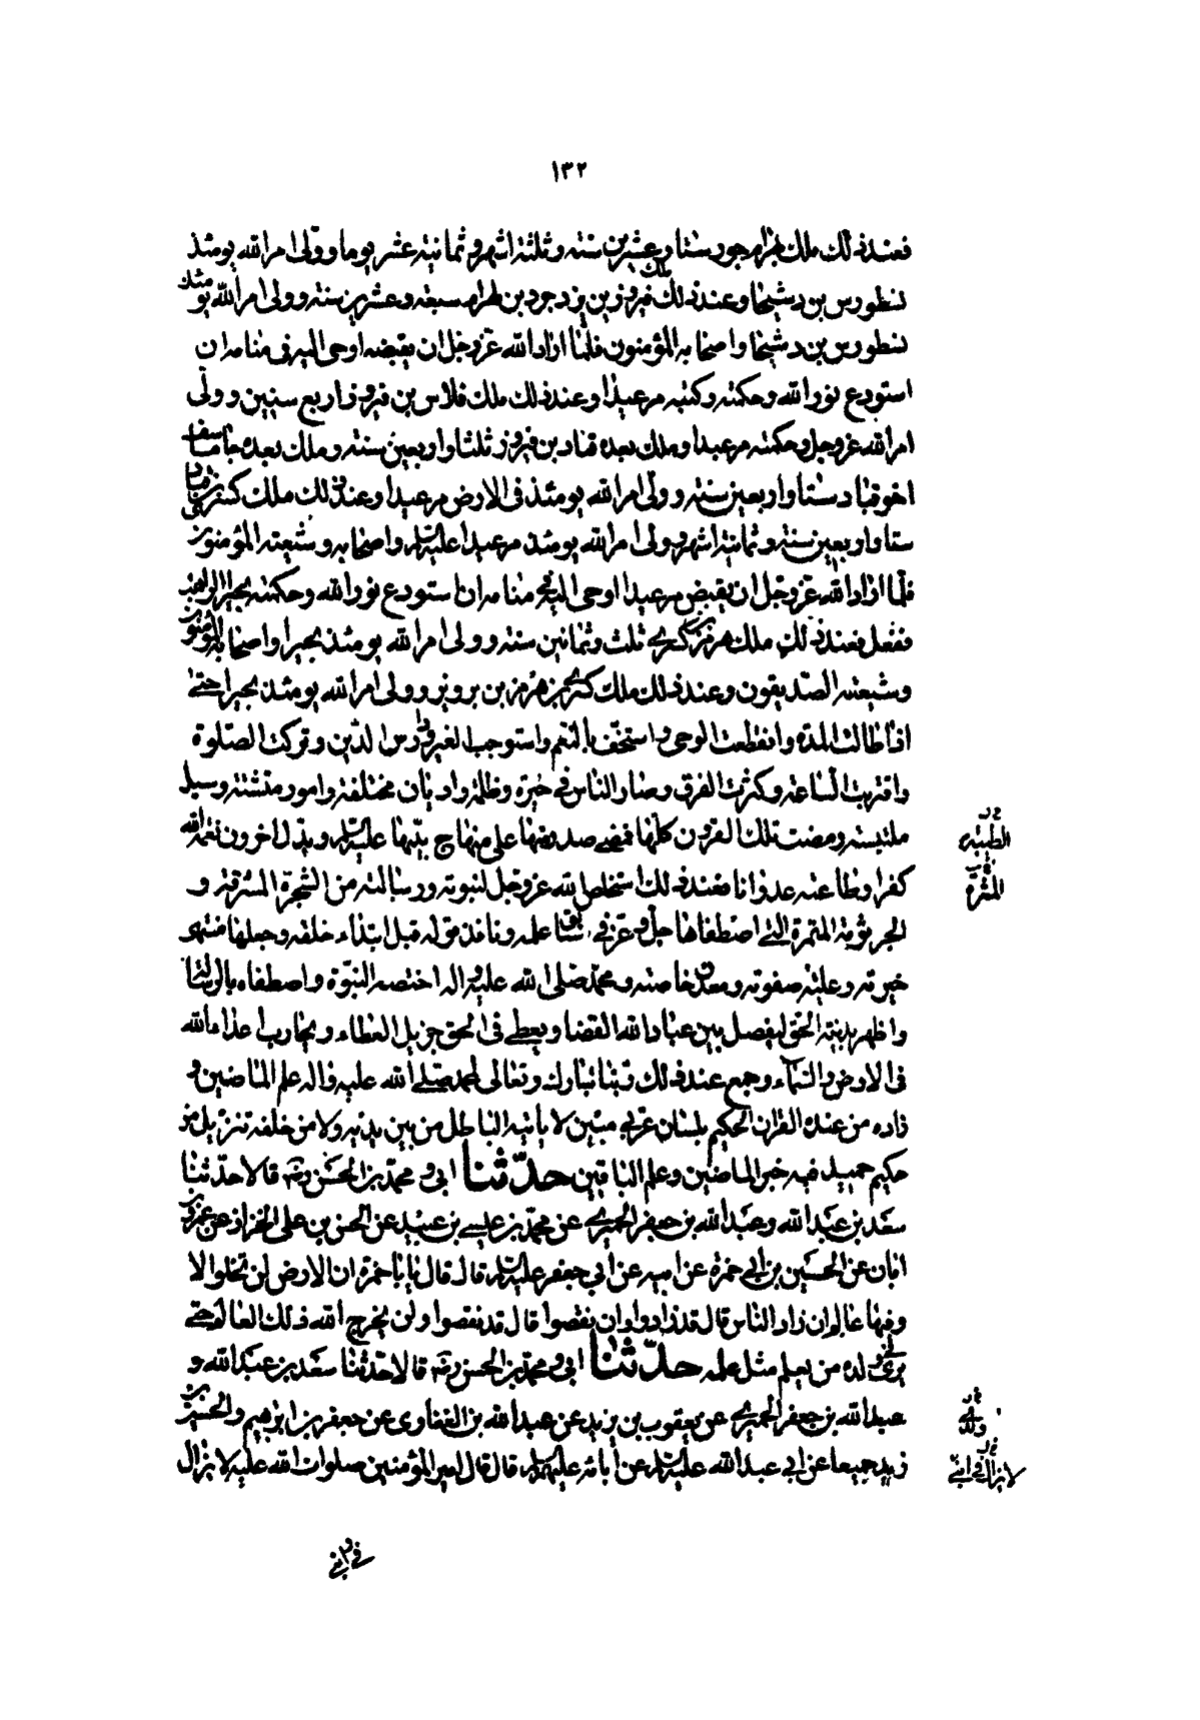 ١٣٢
فعند ذلك ملك بهرام جور ستا وعشرين سنة وثلثة اشهر وثمانية عشر يوما وولى امر الله يومئذ
نسطورس بن دشيخا وعند ذلك ملك فيروز بن يزدجرد بن بهرام سبعة وعشرين سنة وولى امر الله يومئذ
نسطورس بن دشيخا واصحابه المؤمنون فلما اراد الله عز وجل ان يقبضه اوحى اليه فى منامه ان
استودع نور الله وحكمته وكتبه مرعيدا وعند ذلك ملك فلاس بن فيروز اربع سنين وولى
امر الله عز وجل وحكمته مرعيدا وملك بعده قباد بن فيروز ثلثا واربعين سنة وملك بعده جاماسف
اخو قباد ستا واربعين سنة وولى امر الله يومئذ فى الارض مرعيدا وعند ذلك ملك كسرى بن قباد
ستا واربعين سنة وثمانية اشهر وولى امر الله يومئذ مرعيدا عليه السلام واصحابه وشيعته المؤمنون
فلما اراد الله عز وجل ان يقبض مرعيدا اوحى اليه فى منامه ان استودع نور الله وحكمته بحيرا الراهب
ففعل فعند ذلك ملك هرمز بن كسرى ثلث وثمانين سنة وولى امر الله يومئذ بحيرا واصحابه المؤمنون
وشيعته الصديقون وعند ذلك ملك كسرى بن هرمز بن برويز وولى امر الله يومئذ بحيرا حتى
اذا طالت المدة وانقطعت الوحى واستخف بالنعم واستوجب الغير ودرس الدين وتركت الصلوة
واقتربت الساعة وكثرت الفرق وصار الناس فى حيرة وظلمة واديان مختلفة وامور متشتتة وسبل
ملتبسة ومضت تلك القرون كلها فمضى صدر منها على منهاج نبيها عليه السلام وبدل اخرون نعمة الله
كفرا وطاعته عدوانا فعند ذلك استخلص الله عز وجل لنبوته ورسالته من الشجرة المشرقة و
الجرثومة المثمرة التى اصطفاها جل وعز فى سابق علمه ونافذ قوله قبل ابتداء خلقه وجعلها منتهى
خيرته وغاية صفوته ومعدن خاصته ومحمد صلى الله عليه واله اختصه النبوة واصطفاه بالرسالة
واظهر بدينه الحق ليفصل بين عباد الله القضا ويعطى فى الحق جزيل العطاء ويحارب اعداء الله
فى الارض والسماء وجمع عند ذلك ربنا تبارك وتعالى لمحمد صلى الله عليه واله علم الماضين و
زاده من عنده القران الحكيم بلسان عربى مبين لا يأتيه الباطل من بين يديه ولا من خلفه تنزيل من
حكيم حميد فيه خبر الماضين وعلم الباقين حدثنا ابى ومحمد بن الحسن رضه قالا حدثنا
سعد بن عبد الله وعبد الله بن جعفر الحميرى عن محمد بن عيسى بن عبيد عن الحسن بن على الخزاز عن عمرو بن
ابان عن الحسين بن ابى حمزة عن ابيه عن ابى جعفر عليه السلام قال قال يا با حمزة ان الارض لن تخلو الا
وفيها عالم ان زاد الناس قال قد زادوا وان نقصوا قال قد نقصوا ولن يخرج الله ذلك العالم حتى
يرى فى ولده من يعلم مثل علمه حدثنا ابى ومحمد بن الحسن رضه قالا حدثنا سعد بن عبد الله و
عبد الله بن جعفر الحميرى عن يعقوب بن يزيد عن عبد الله بن الغفارى عن جعفر بن ابرهيم والحسين بن
زيد جميعا عن ابى عبد الله عليه السلام عن ابائه عليهم السلام قال قال امير المؤمنين صلوات الله عليه لا يزال
الطيبة
المثمرة
لا يزال فى
فى ولدى